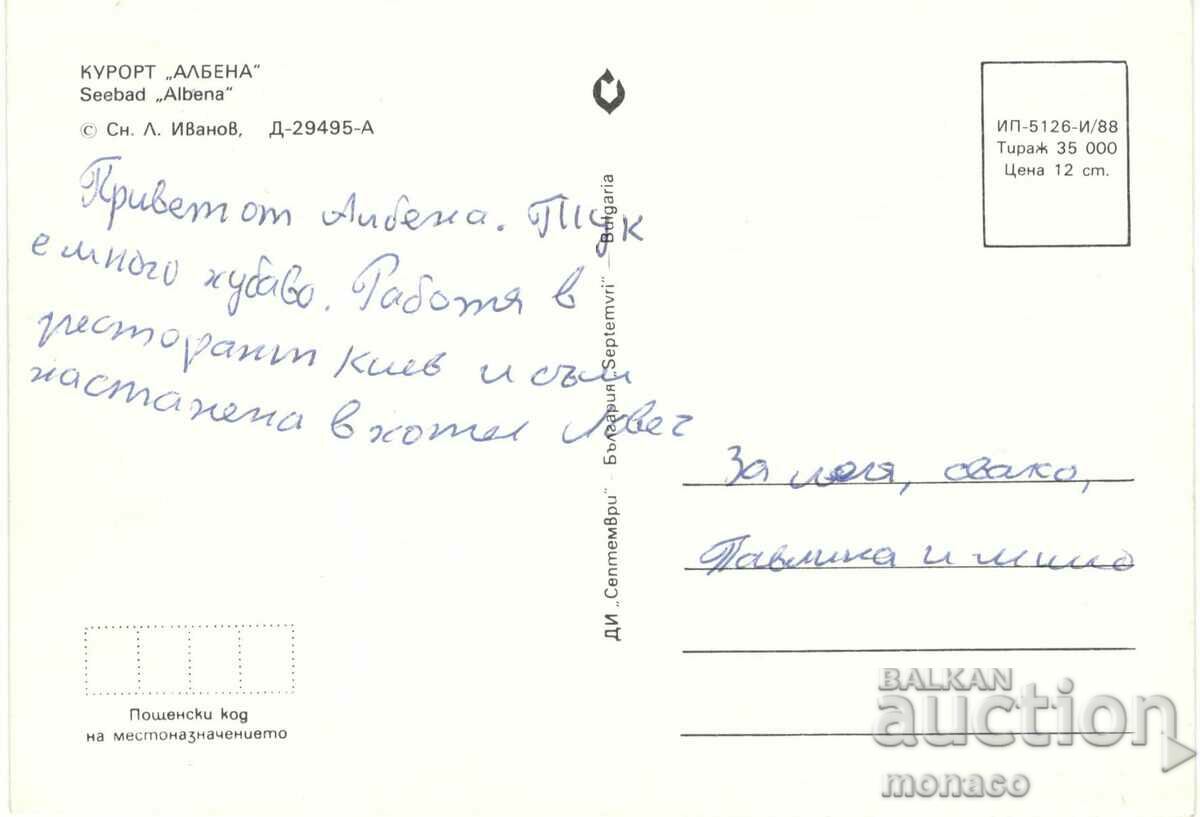 КУРОРТ „АЛБЕНА“
Seebad „Albena“
© Сн. Л. Иванов, Д-29495-А
ИП-5126-И/88
Тираж 35 000
Цена 12 ст.
Привет от Албена. Тук
е много хубаво. Работя в
ресторант Киев и съм
настанена в хотел Ловеч
ДИ „Септември“ - България „Septemvri“ — Bulgaria
За леля, свако,
Павлина и
Пощенски код
на местоназначението
BALKAN
auction
monaco